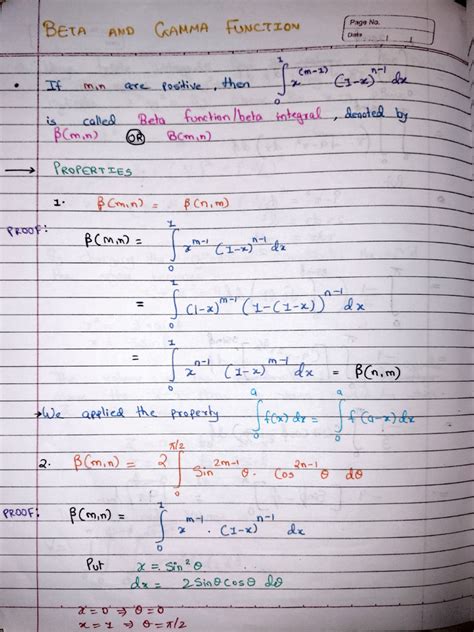 BETA AND GAMMA FUNCTION
Page No.
Date / /
• If m,n are positive, then ∫₀¹ x^(m-1) (1-x)^(n-1) dx
is called Beta function/beta integral, denoted by
β(m,n) OR B(m,n)
→ PROPERTIES
1. β(m,n) = β(n,m)
PROOF: β(m,n) = ∫₀¹ x^(m-1) (1-x)^(n-1) dx
= ∫₀¹ (1-x)^(m-1) (1-(1-x))^(n-1) dx
= ∫₀¹ x^(n-1) (1-x)^(m-1) dx = β(n,m)
→ We applied the property ∫₀ᵃ f(x) dx = ∫₀ᵃ f(a-x) dx
2. β(m,n) = 2 ∫₀^(π/2) Sin^(2m-1) θ · Cos^(2n-1) θ dθ
PROOF: β(m,n) = ∫₀¹ x^(m-1) · (1-x)^(n-1) dx
Put x = Sin²θ
dx = 2SinθCosθ dθ
x=0 ⇒ θ=0
x=1 ⇒ θ=π/2